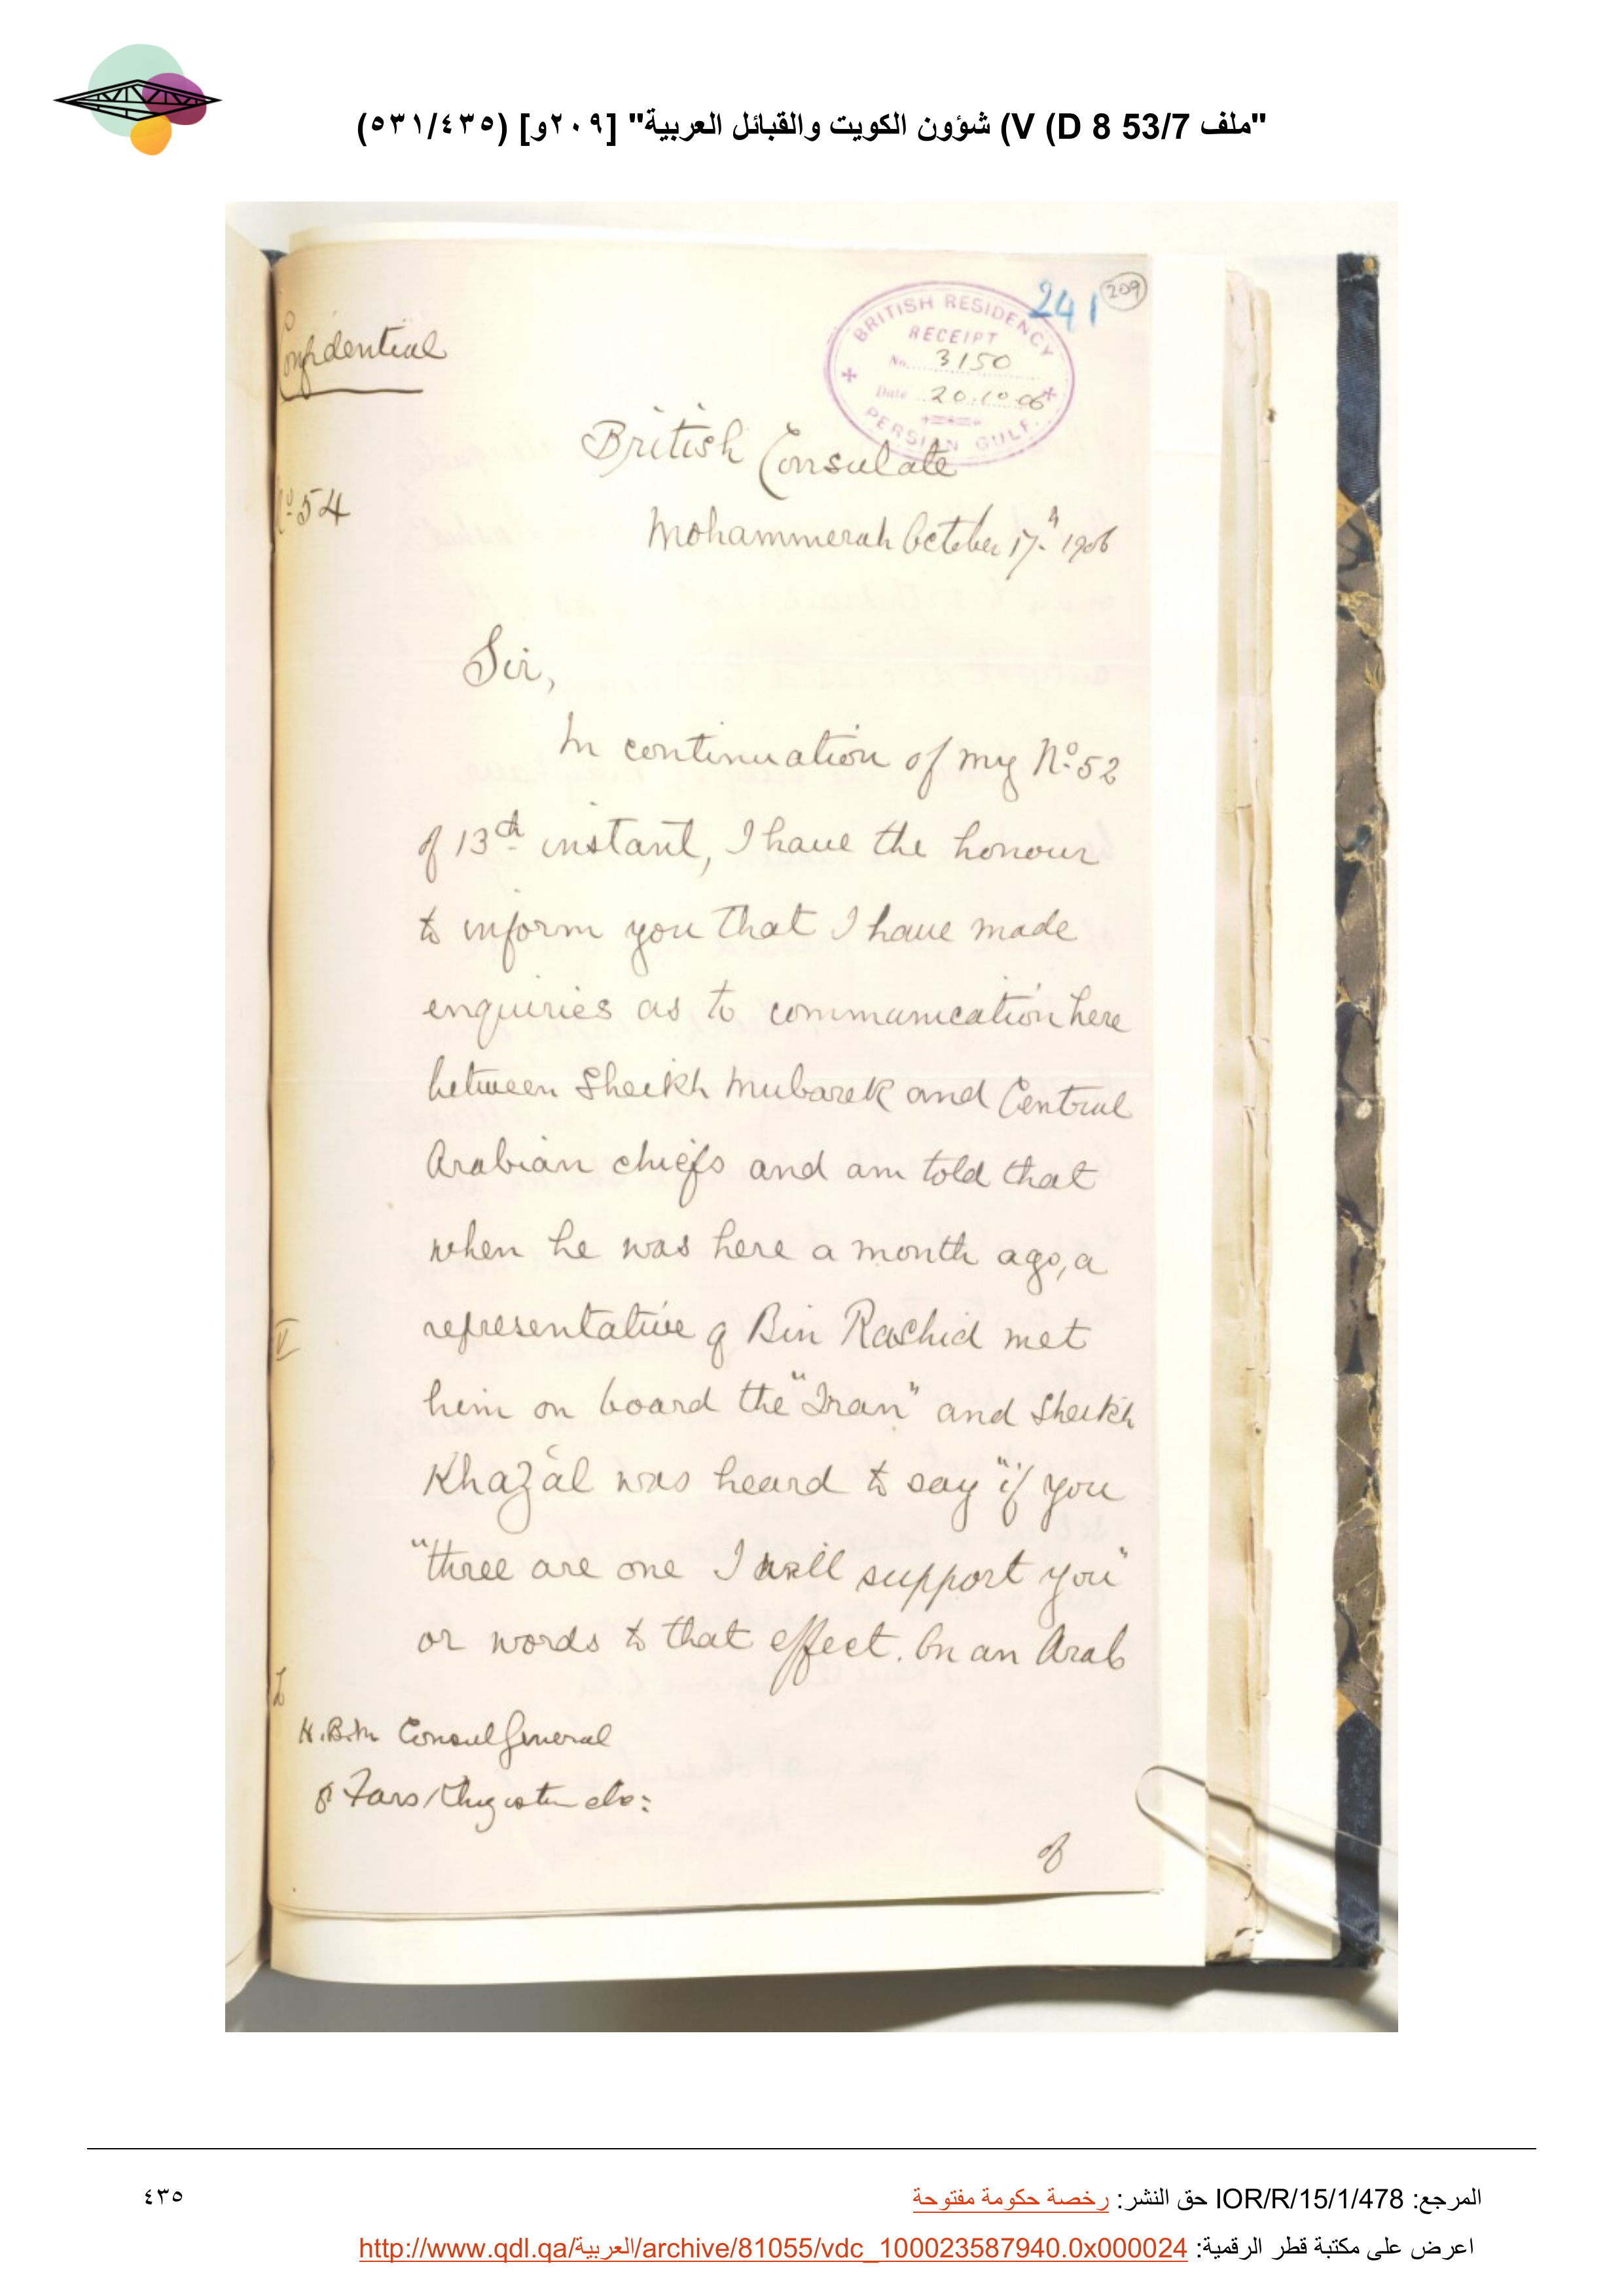 "ملف 53/7 V (D 8) شؤون الكويت والقبائل العربية" [٢٠٩و] (٥٣١/٤٣٥)
241
209
BRITISH RESIDENCY
RECEIPT
No. 3150
Date 20.10.06
PERSIAN GULF.
Confidential
British Consulate
No. 54
Mohammerah October 17th 1906
Sir,
In continuation of my No. 52
of 13th instant, I have the honour
to inform you that I have made
enquiries as to communication here
between Sheikh Mubarek and Central
Arabian chiefs and am told that
when he was here a month ago, a
representative of Bin Rashid met
him on board the "Iran" and Sheikh
Khazāl was heard to say "if you
"three are one I will support you"
or words to that effect. On an Arab
H.B.M Consul General
of Fars, Khuzistan etc:
of
المرجع: IOR/R/15/1/478 حق النشر: رخصة حكومة مفتوحة
٤٣٥
اعرض على مكتبة قطر الرقمية: http://www.qdl.qa/العربية/archive/81055/vdc_100023587940.0x000024